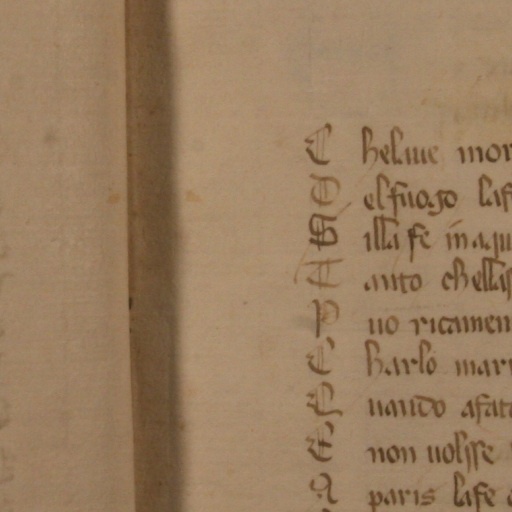 C helaue mor
D el fuogo laf
M illa fe in aqu
T anto chellas
P uo ricamen
C harlo mar
Q uando afat
E non uolsse
A paris lafe